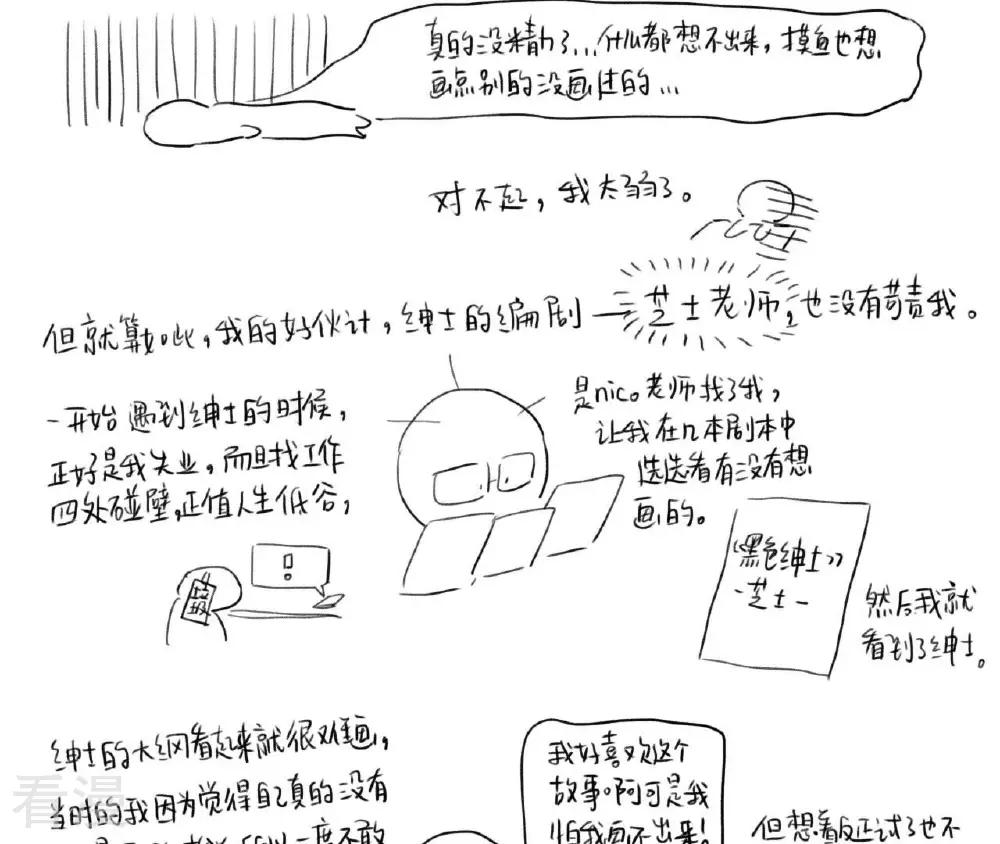 真的没精力了...什么都想不出来，摸鱼也想
画点别的没画过的...
对不起，我太弱了。
但就算如此，我的好伙计，绅士的编剧——芝士老师，也没有苛责我。
一开始遇到绅士的时候，
正好是我失业，而且找工作
四处碰壁，正值人生低谷，
是nico老师找了我，
让我在几本剧本中
选选看有没有想
画的。
!
垃圾
《黑色绅士》
-芝士-
然后我就
看到了绅士。
绅士的大纲看起来就很难画，
当时的我因为觉得自己真的没有
一度不敢
我好喜欢这个
故事。啊可是我
怕我画不出来！
但想着反正试了也不
看漫